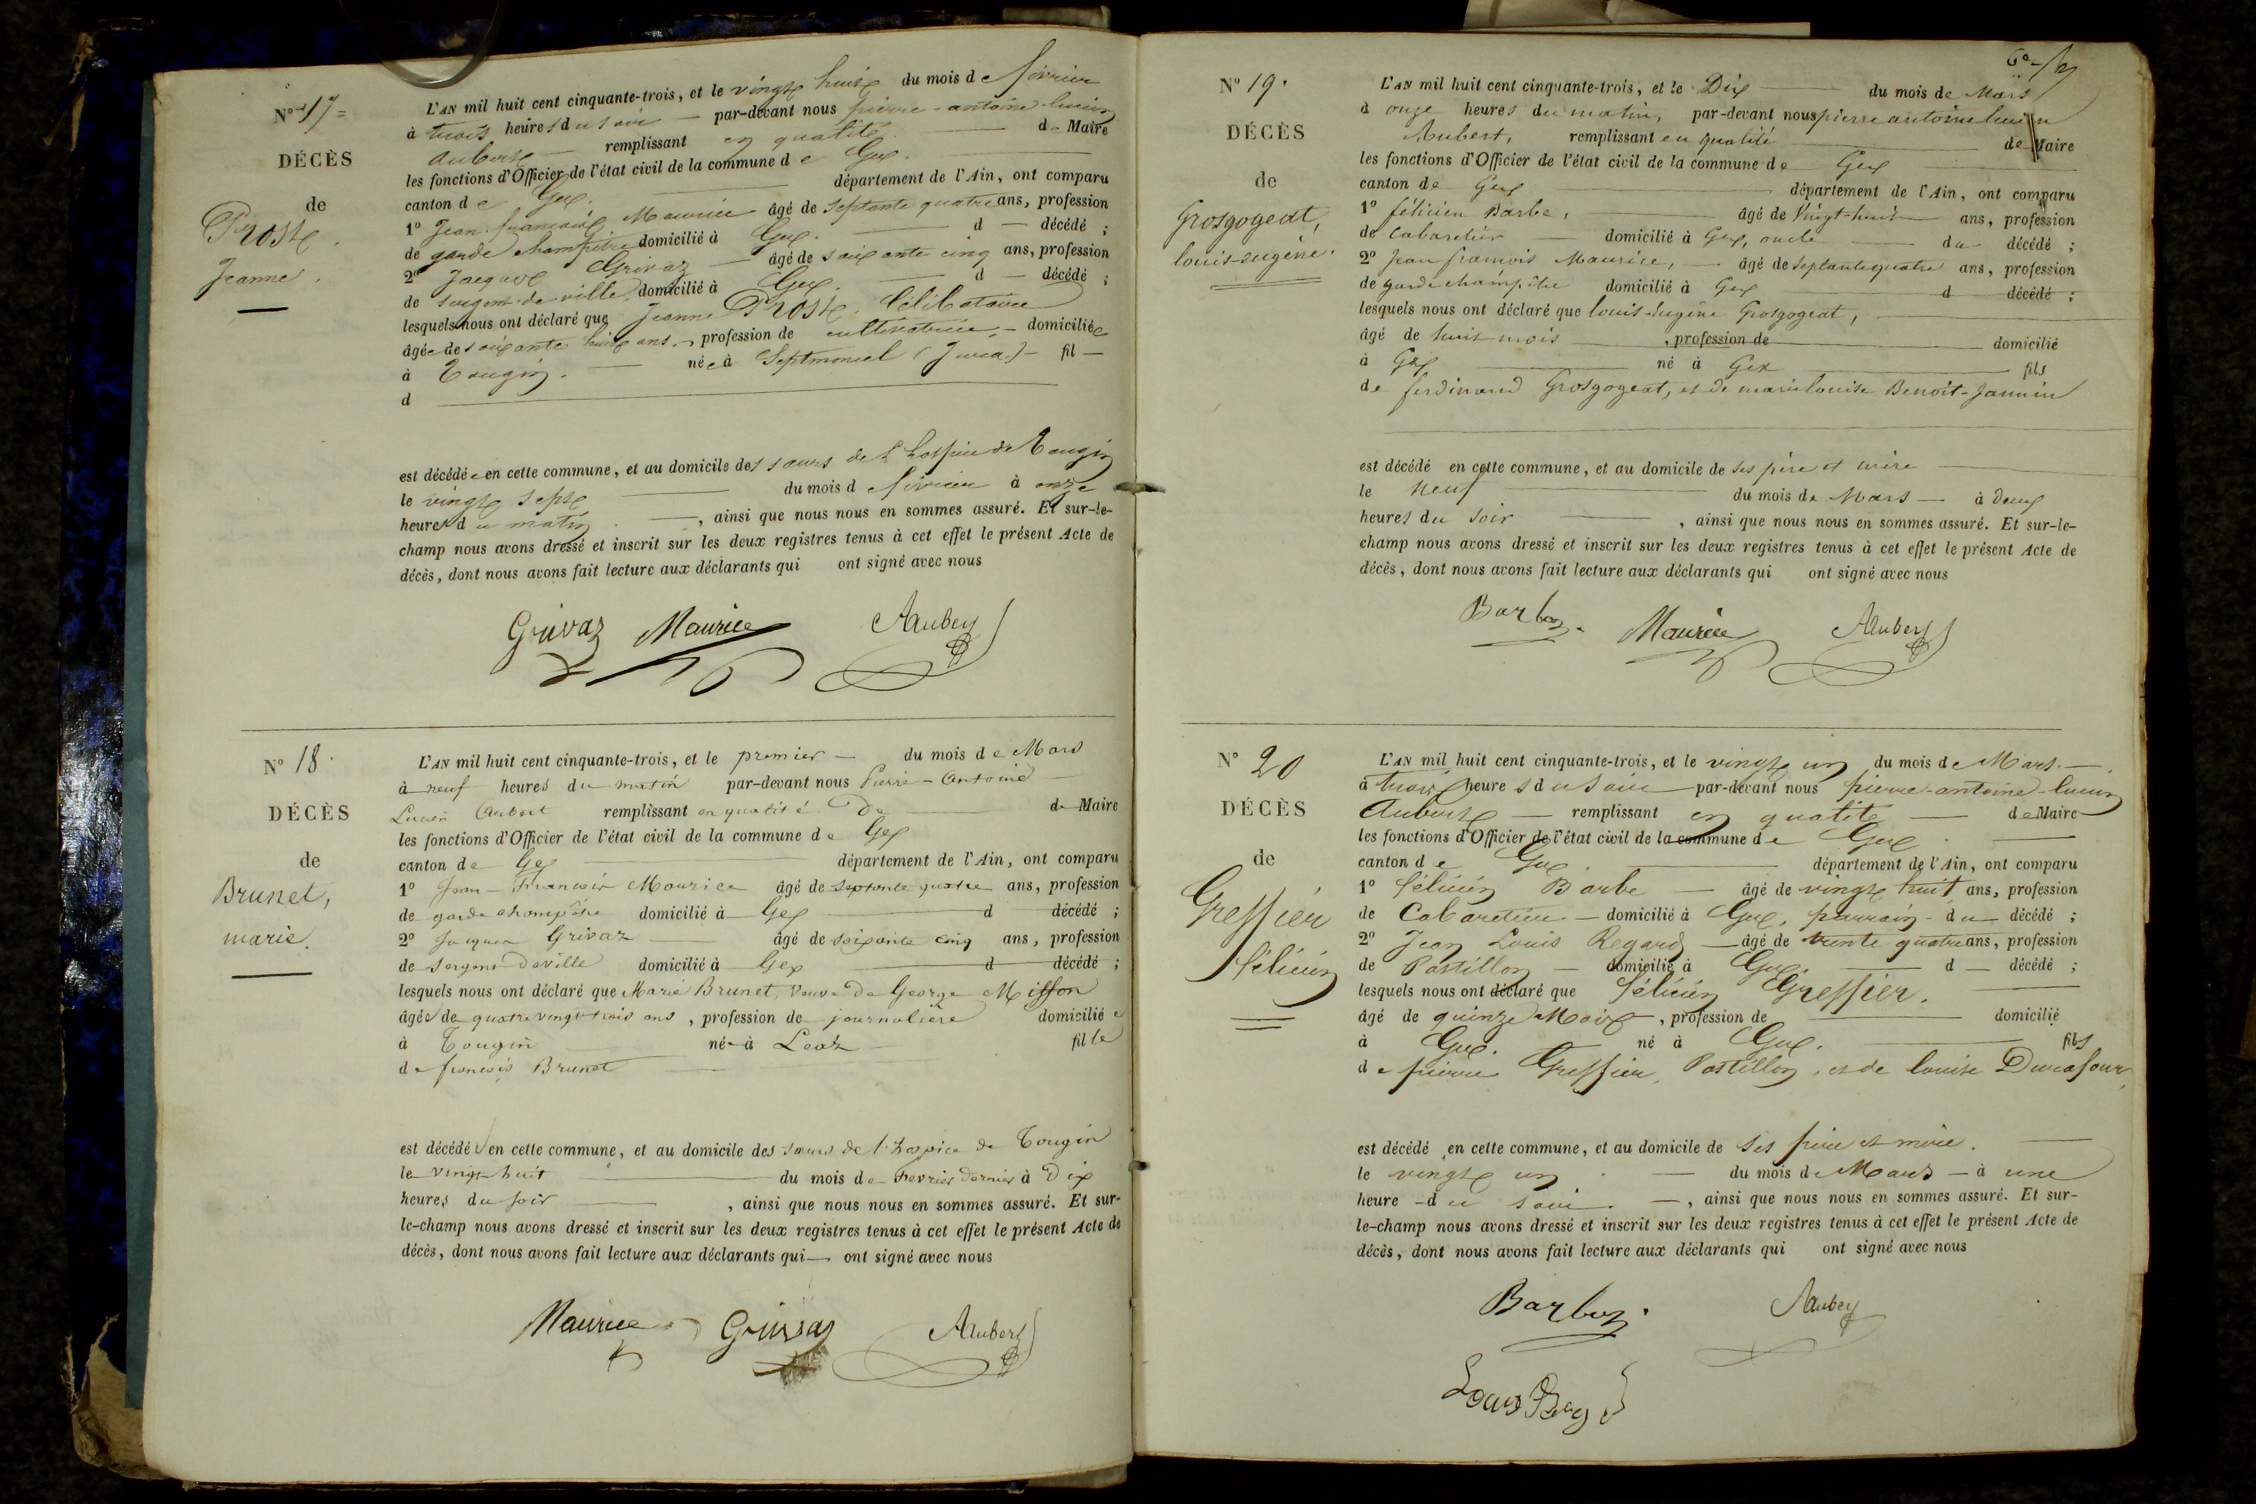 N° 17=
DÉCÈS
de
Prost
Jeanne.
L'AN mil huit cent cinquante-trois, et le vingt huit du mois de février
à trois heures du soir par-devant nous pierre-antoine-lucien
Aubert remplissant en qualité de Maire
les fonctions d'Officier de l'état civil de la commune de Gex.
canton de Gex. département de l'Ain, ont comparu
1° Jean françois Maurice âgé de septante quatre ans, profession
de garde champêtre domicilié à Gex. d décédé ;
2° Jacques Grivaz âgé de soixante cinq ans, profession
de sergent-de-ville. domicilié à Gex. d décédé ;
lesquels nous ont déclaré que Jeanne Prost, Célibataire
âgée de soixante huit ans. profession de cultivatrice domiciliée
à Tougin. née à Septmoncel (Jura.) fil
d
est décédée en cette commune, et au domicile des sœurs de l'hospice de Tougin
le vingt sept du mois de février à onze
heures du matin. , ainsi que nous nous en sommes assuré. Et sur-le-
champ nous avons dressé et inscrit sur les deux registres tenus à cet effet le présent Acte de
décès, dont nous avons fait lecture aux déclarants qui ont signé avec nous
Grivaz Maurice Aubert
N° 18
DÉCÈS
de
Brunet,
marie.
L'AN mil huit cent cinquante-trois, et le premier du mois de Mars
à neuf heures du matin par-devant nous Pierre-Antoine
Lucien Aubert remplissant en qualité de de Maire
les fonctions d'Officier de l'état civil de la commune de Gex
canton de Gex département de l'Ain, ont comparu
1° Jean-François Maurice âgé de septante quatre ans, profession
de garde champêtre domicilié à Gex d décédé ;
2° Jacques Grivaz âgé de soixante cinq ans, profession
de sergent de ville domicilié à Gex d décédé ;
lesquels nous ont déclaré que Marie Brunet, veuve de George Miffon
âgée de quatre vingt trois ans , profession de journalière domiciliée
à Tougin né à Léaz fille
de françois Brunet
est décédé en cette commune, et au domicile des sœurs de l'hospice de Tougin
le vingt huit du mois de Fevrier dernier à Dix
heures du soir , ainsi que nous nous en sommes assuré. Et sur-
le-champ nous avons dressé et inscrit sur les deux registres tenus à cet effet le présent Acte de
décès, dont nous avons fait lecture aux déclarants qui ont signé avec nous
Maurice Grivaz Aubert
N° 19.
DÉCÈS
de
Grosgogeat,
louis-eugène.
L'AN mil huit cent cinquante-trois, et le Dix du mois de Mars
à onze heures du matin, par-devant nous pierre antoine lucien
Aubert, remplissant en qualité de Maire
les fonctions d'Officier de l'état civil de la commune de Gex
canton de Gex département de l'Ain, ont comparu
1° félicien Barbe, âgé de Vingt-huit ans, profession
de cabaretier domicilié à Gex, oncle du décédé ;
2° Jean françois Maurice, âgé de septante quatre ans, profession
de garde champêtre domicilié à Gex d décédé ;
lesquels nous ont déclaré que louis-Eugène Grosgogeat,
âgé de huit mois , profession de domicilié
à Gex né à Gex fils
de ferdinand Grosgogeat, et de marie louise Benoit-Jannin
est décédé en cette commune, et au domicile de ses père et mère
le neuf du mois de Mars à deux
heures du soir , ainsi que nous nous en sommes assuré. Et sur-le-
champ nous avons dressé et inscrit sur les deux registres tenus à cet effet le présent Acte de
décès, dont nous avons fait lecture aux déclarants qui ont signé avec nous
Barbe Maurice Aubert
N° 20
DÉCÈS
de
Greffier
félicien
L'AN mil huit cent cinquante-trois, et le vingt un du mois de Mars.
à trois heures du soir par-devant nous pierre-antoine-lucien
Aubert remplissant en qualité de Maire
les fonctions d'Officier de l'état civil de la commune de Gex.
canton de Gex. département de l'Ain, ont comparu
1° félicien Barbe âgé de vingt huit ans, profession
de Cabaretier domicilié à Gex, parrain du décédé ;
2° Jean Louis Regard âgé de trente quatre ans, profession
de Postillon domicilié à Gex. d décédé ;
lesquels nous ont déclaré que félicien Greffier.
âgé de quinze Mois , profession de domicilié
à Gex. né à Gex. fils
de pierre Greffier, Postillon, et de louise Durafour,
est décédé en cette commune, et au domicile de ses père et mère.
le vingt un du mois de Mars à une
heure du soir. , ainsi que nous nous en sommes assuré. Et sur-
le-champ nous avons dressé et inscrit sur les deux registres tenus à cet effet le présent Acte de
décès, dont nous avons fait lecture aux déclarants qui ont signé avec nous
Barbe Aubert